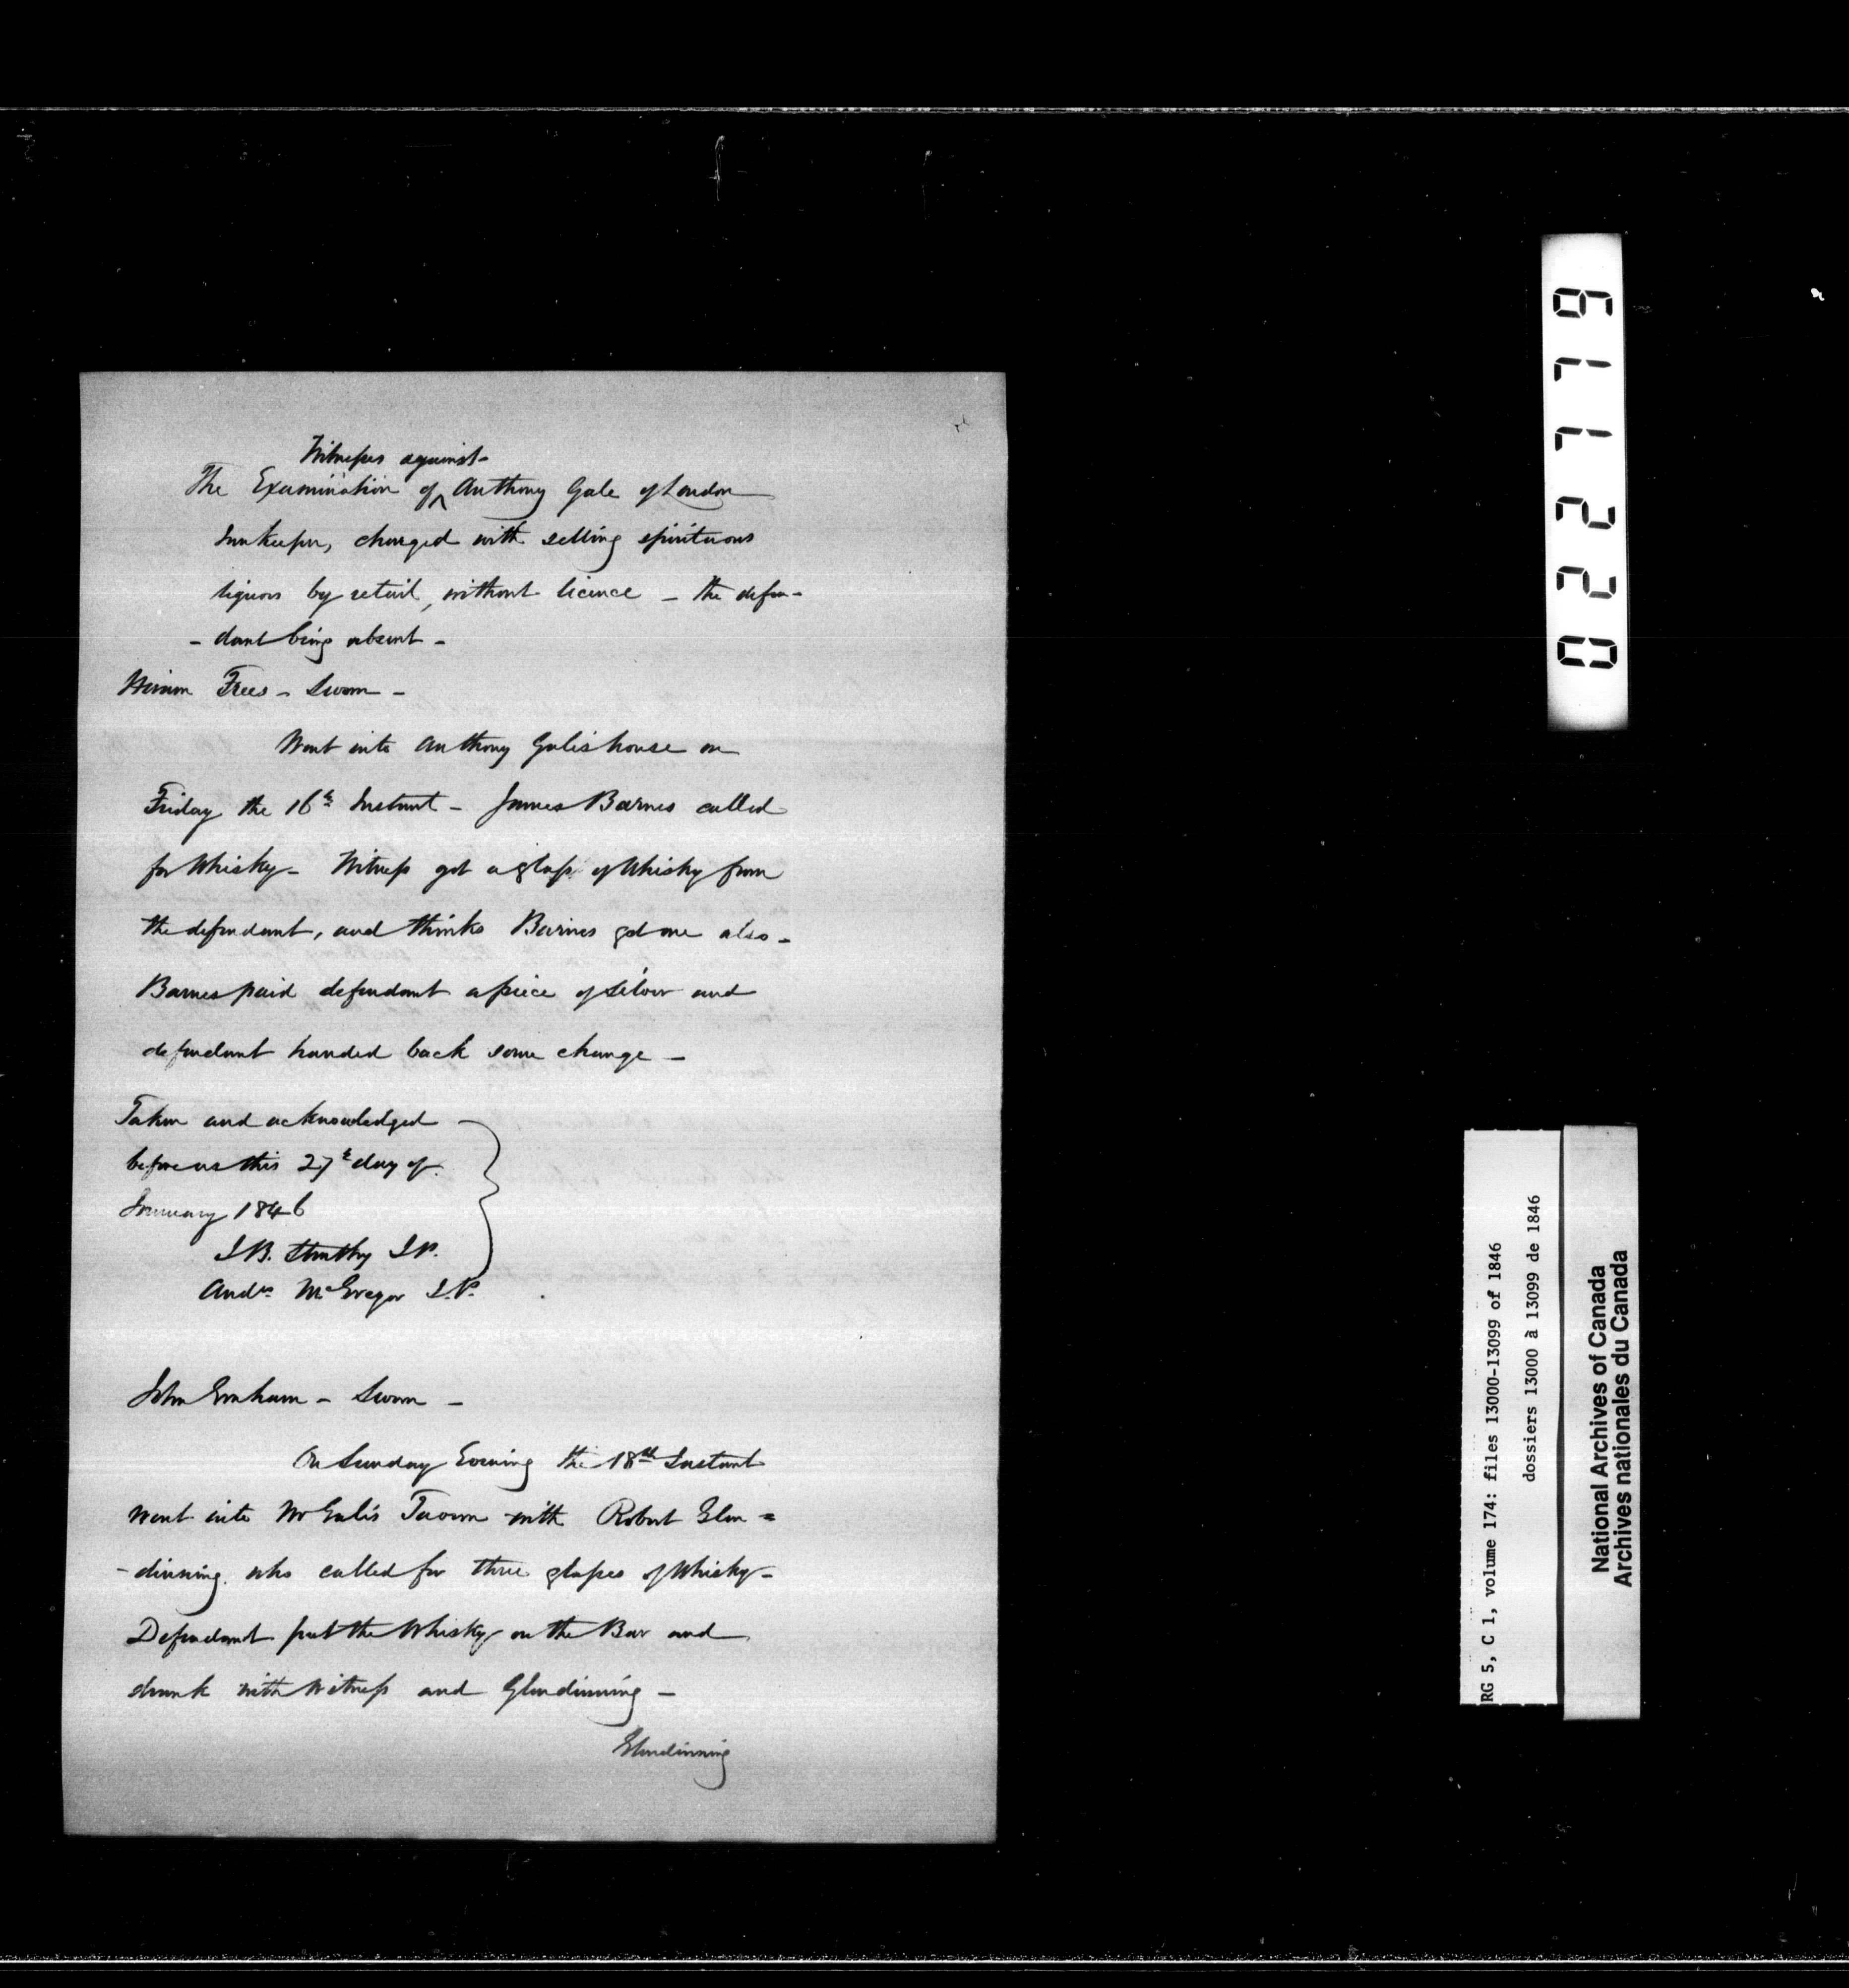 Witnesses against
The Examination of ^ Anthony Gale of London
Innkeeper, charged with selling spirituous
liquors by retail, without licence – the defen-
- dant being absent –
Hiram Frees – Sworn –
Went into Anthony Gale's house on
Friday the 16th Instant – James Barnes called
for Whisky – Witness got a glass of Whisky from
the defendant, and thinks Barnes got one also –
Barnes paid defendant a piece of Silver and
defendant handed back some change –
Taken and acknowledged
before us this 27th day of
January 1846
J.B. Strathy J.P.
Andw McGregor J.P.
John Graham – Sworn –
On Sunday Evening the 18th Instant
went into Mr Gale's Tavern with Robert Glen =
- dinning who called for three glasses of Whisky –
Defendant put the Whisky on the Bar and
drank with Witness and Glendinning –
Glendinning
022119
RG 5, C 1, volume 174: files 13000-13099 of 1846
dossiers 13000 à 13099 de 1846
National Archives of Canada
Archives nationales du Canada